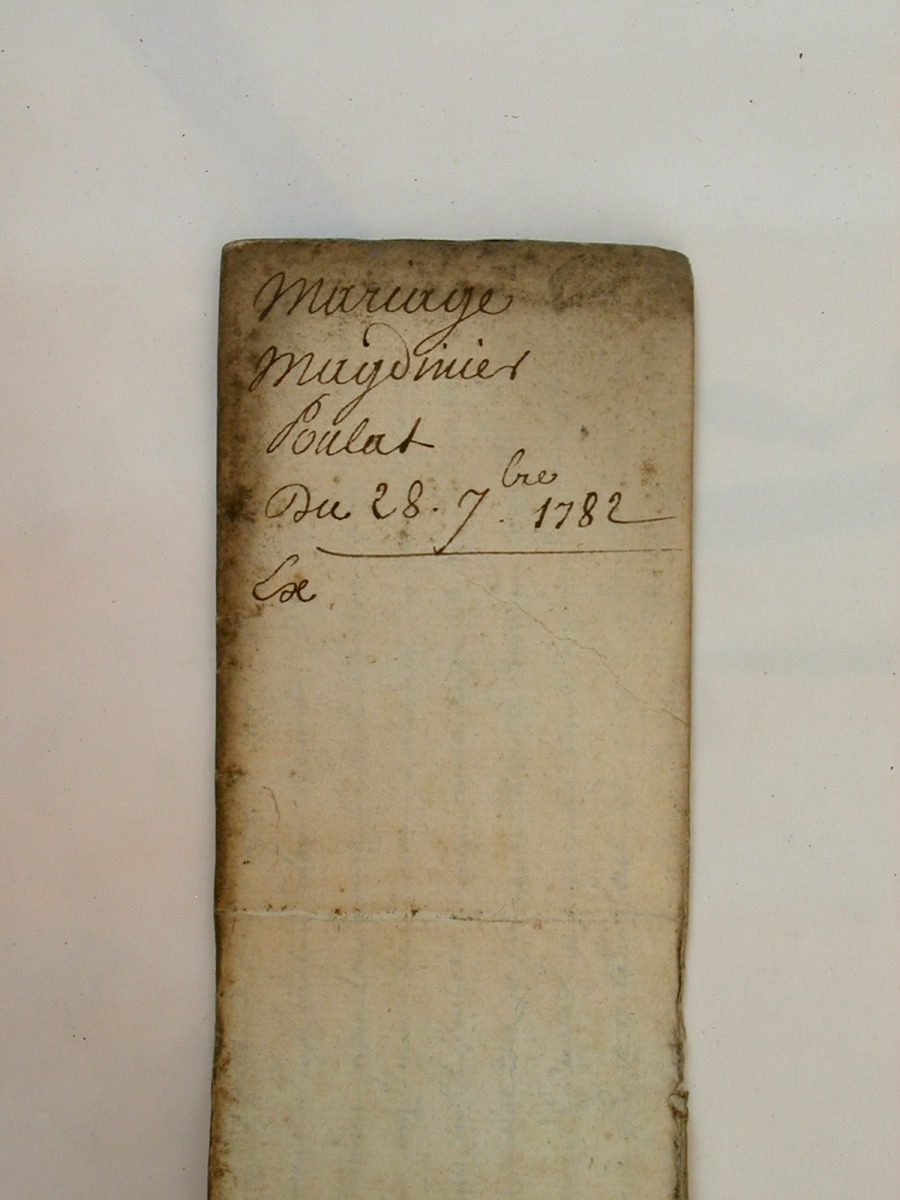 Mariage
Magdinier
Poulat
Du 28. 7.bre 1782
Ex